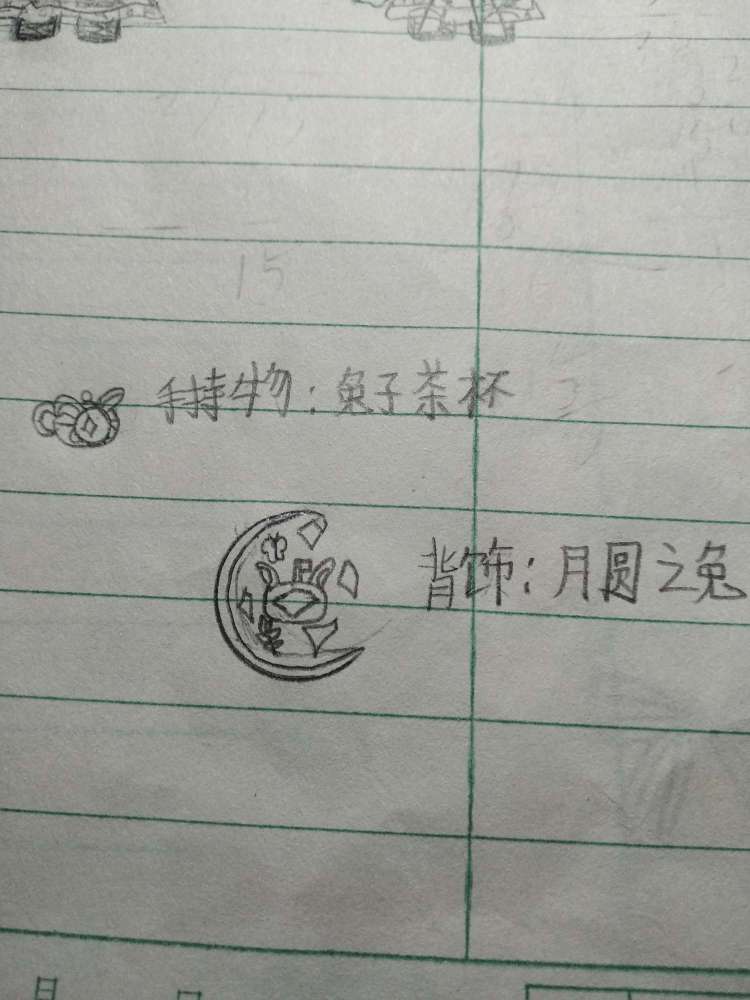 15
手持物：兔子茶杯
背饰：月圆之兔